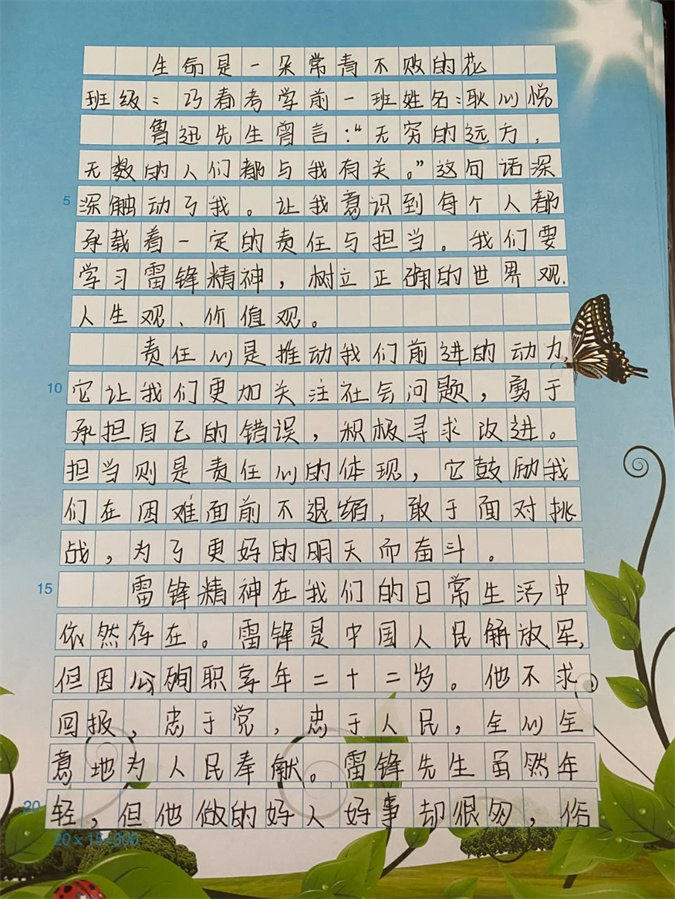 生命是一朵常青不败的花
班级：巧春考学前一班姓名：耿心悦
鲁迅先生曾言：“无穷的远方，
无数的人们都与我有关。”这句话深
5 深触动了我。让我意识到每个人都
承载着一定的责任与担当。我们要
学习雷锋精神，树立正确的世界观、
人生观、价值观。
责任心是推动我们前进的动力
10 它让我们更加关注社会问题，勇于
承担自己的错误，积极寻求改进。
担当则是责任心的体现，它鼓励我
们在困难面前不退缩，敢于面对挑
战，为了更好的明天而奋斗。
15 雷锋精神在我们的日常生活中
依然存在。雷锋是中国人民解放军，
但因公殉职享年二十二岁。他不求
回报，忠于党，忠于人民，全心全
意地为人民奉献。雷锋先生虽然年
20 轻，但他做的好人好事却很多，俗
20×15=300